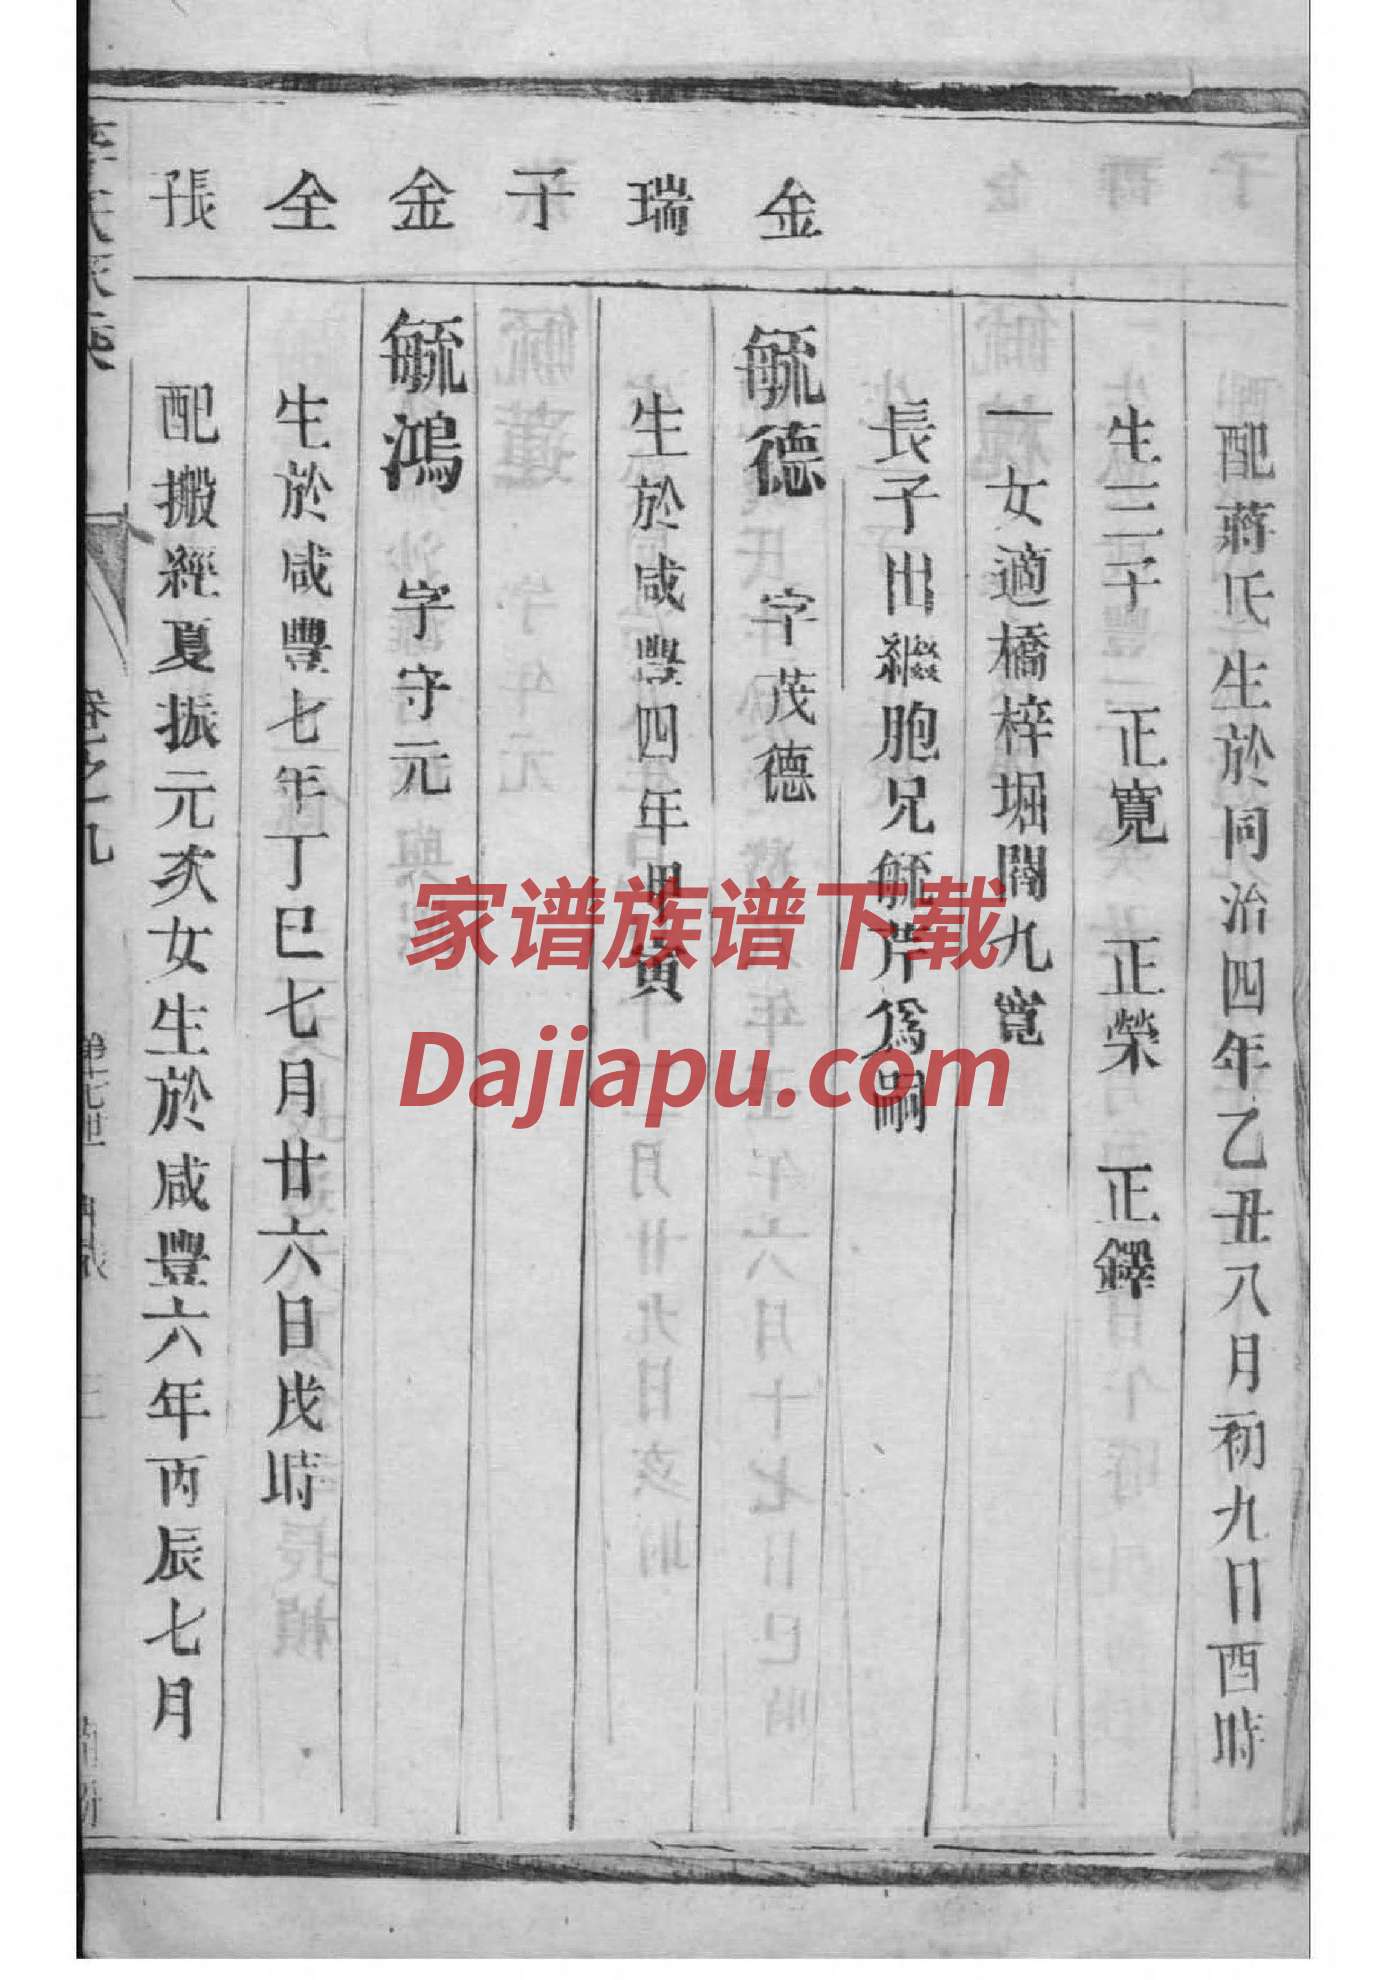 配蔣氏生於同治四年乙丑八月初九日酉時
生三子 正寬 正榮 正鐸
一女適橋梓堀閻九寬
長子出繼胞兄毓芹爲嗣
金
毓德 字茂德
瑞
生於咸豐四年甲寅
子
金
毓鴻 字守元
全
生於咸豐七年丁巳七月廿六日戌時
張
配搬經夏振元次女生於咸豐六年丙辰七月
卷之九
家谱族谱下载
Dajiapu.com